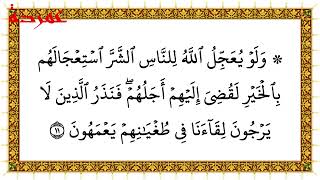 غمزدة
* وَلَوْ يُعَجِّلُ ٱللَّهُ لِلنَّاسِ ٱلشَّرَّ ٱسْتِعْجَالَهُم
بِٱلْخَيْرِ لَقُضِىَ إِلَيْهِمْ أَجَلُهُمْ ۖ فَنَذَرُ ٱلَّذِينَ لَا
يَرْجُونَ لِقَآءَنَا فِى طُغْيَـٰنِهِمْ يَعْمَهُونَ ١١